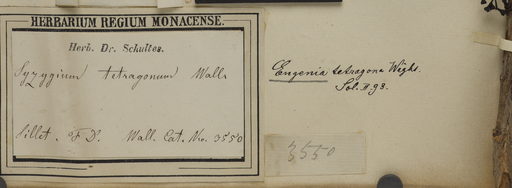 HERBARIUM REGIUM MONACENSE.
Herb. Dr. Schultes.
Syzygium tetragonum Wall.
Sillet. F. D. Wall. Cat. No. 3550
Eugenia tetragona Wight.
3550